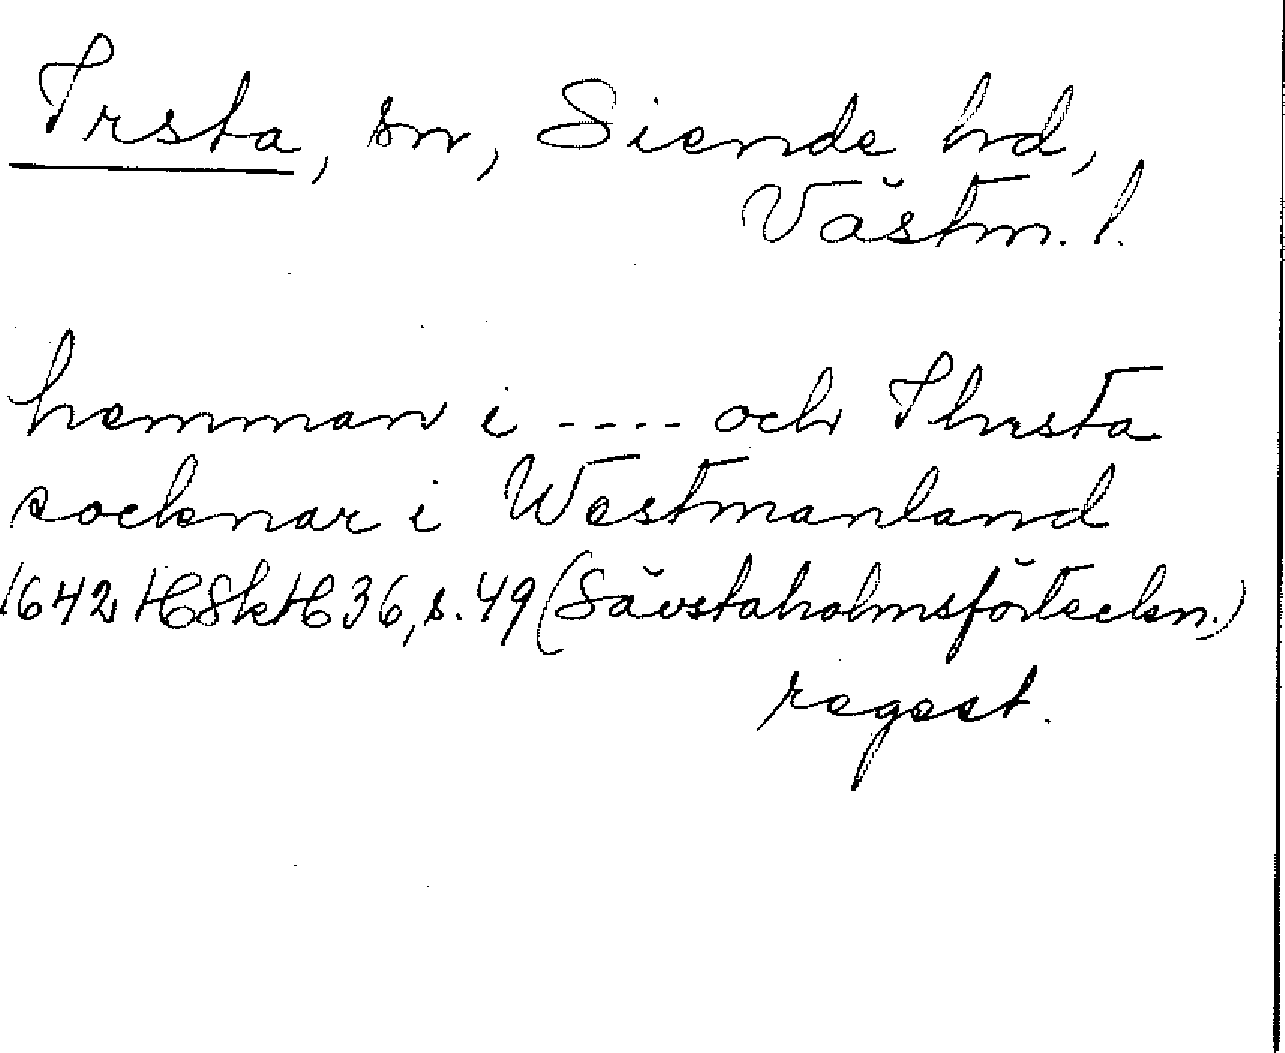 Irsta, sn, Siende hd,
Västm. l.
hemman i ---- och Ihrsta
socknar i Westmanland
1642 HSkH 36, s. 49 (Sävstaholmsförteckn.)
regest.